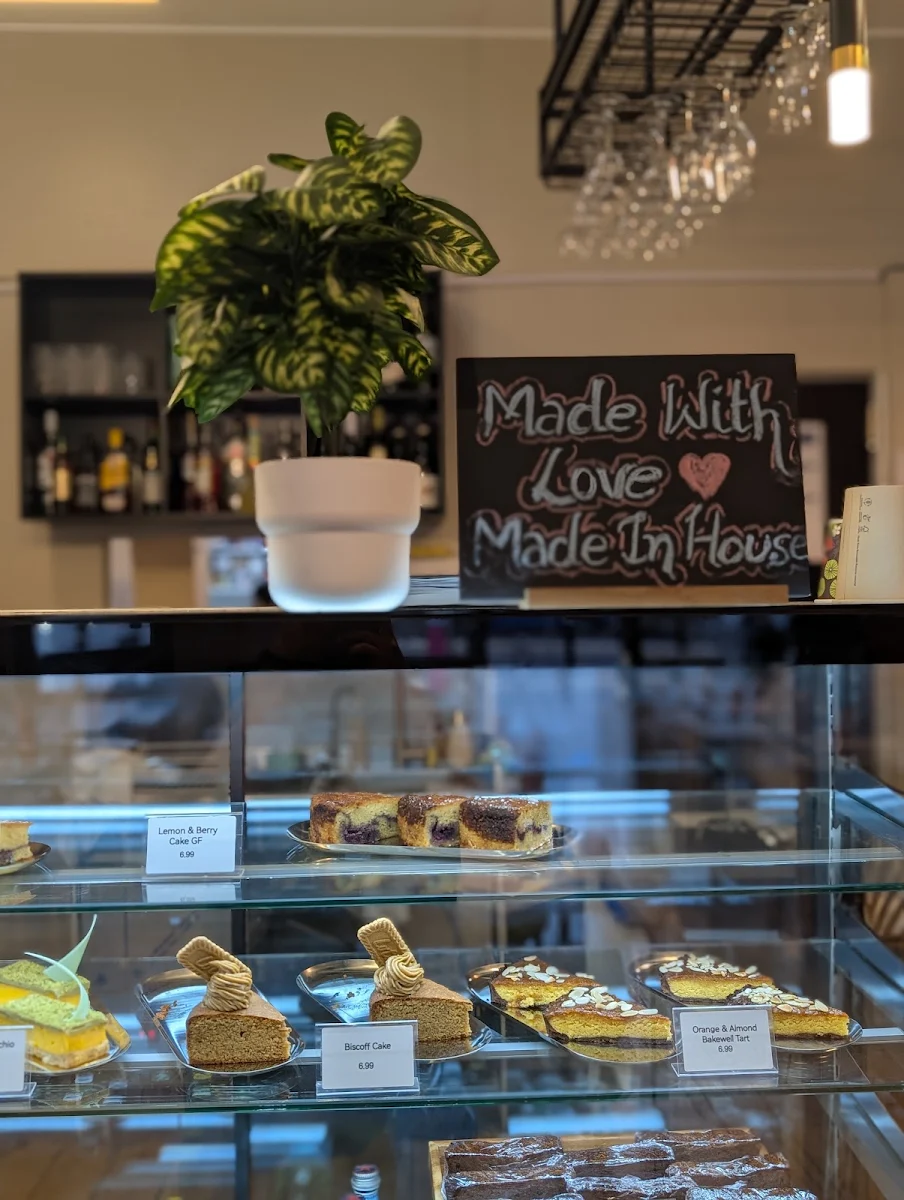 Made With
Love
Made In House
Lemon & Berry
Cake GF
6.99
Biscoff Cake
6.99
Orange & Almond
Bakewell Tart
6.99